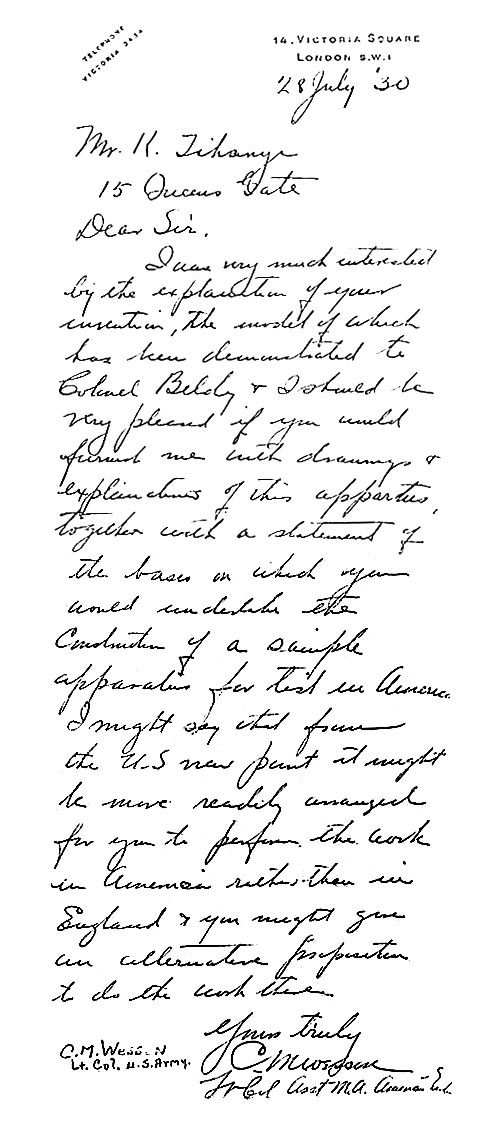 TELEPHONE
VICTORIA 3434
14, VICTORIA SQUARE
LONDON S.W.1
28 July '30
Mr. K. Tihanyi
15 Queens Gate
Dear Sir,
I was very much interested
by the explanation of your
invention, the model of which
has been demonstrated to
Colonel Beldy & I should be
very pleased if you would
furnish me with drawings &
explanations of this apparatus,
together with a statement of
the bases on which you
would undertake the
Construction of a sample
apparatus for test in America.
I might say that from
the U.S view point it might
be more readily arranged
for you to perform the work
in America rather than in
England & you might give
an alternative proposition
to do the work there.
Yours truly
C M Wesson
Lt Col Asst M.A. American
C.M. WESSON
Lt. Col. U.S. Army.